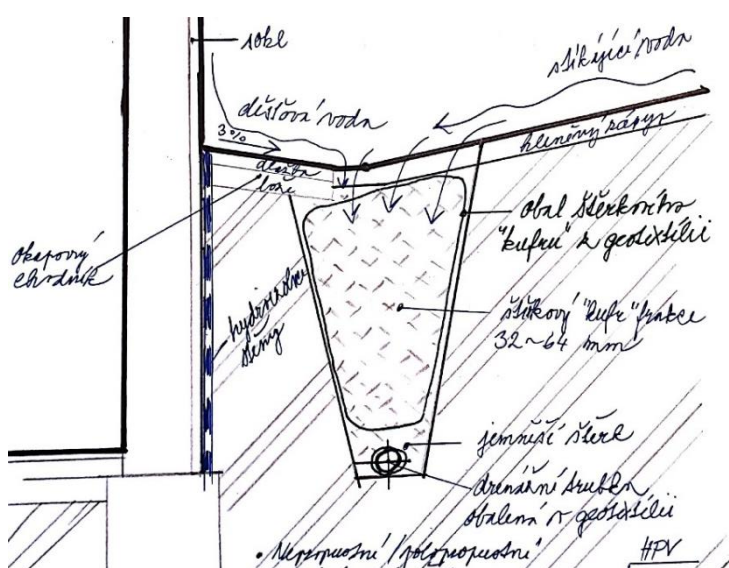 sokl
stékající voda
dešťová voda
3%
hliněvý zásyp
dlažba
lože
obal štěrkového
"kufru" z geotextilií
okapový
chodník
hydroizolace
stěny
štěrkový "kufr" frakce
32~64 mm
jemnější štěrk
drenážní trubka
obalená v geotextilii
• Nepropustné / polopropustné
HPV